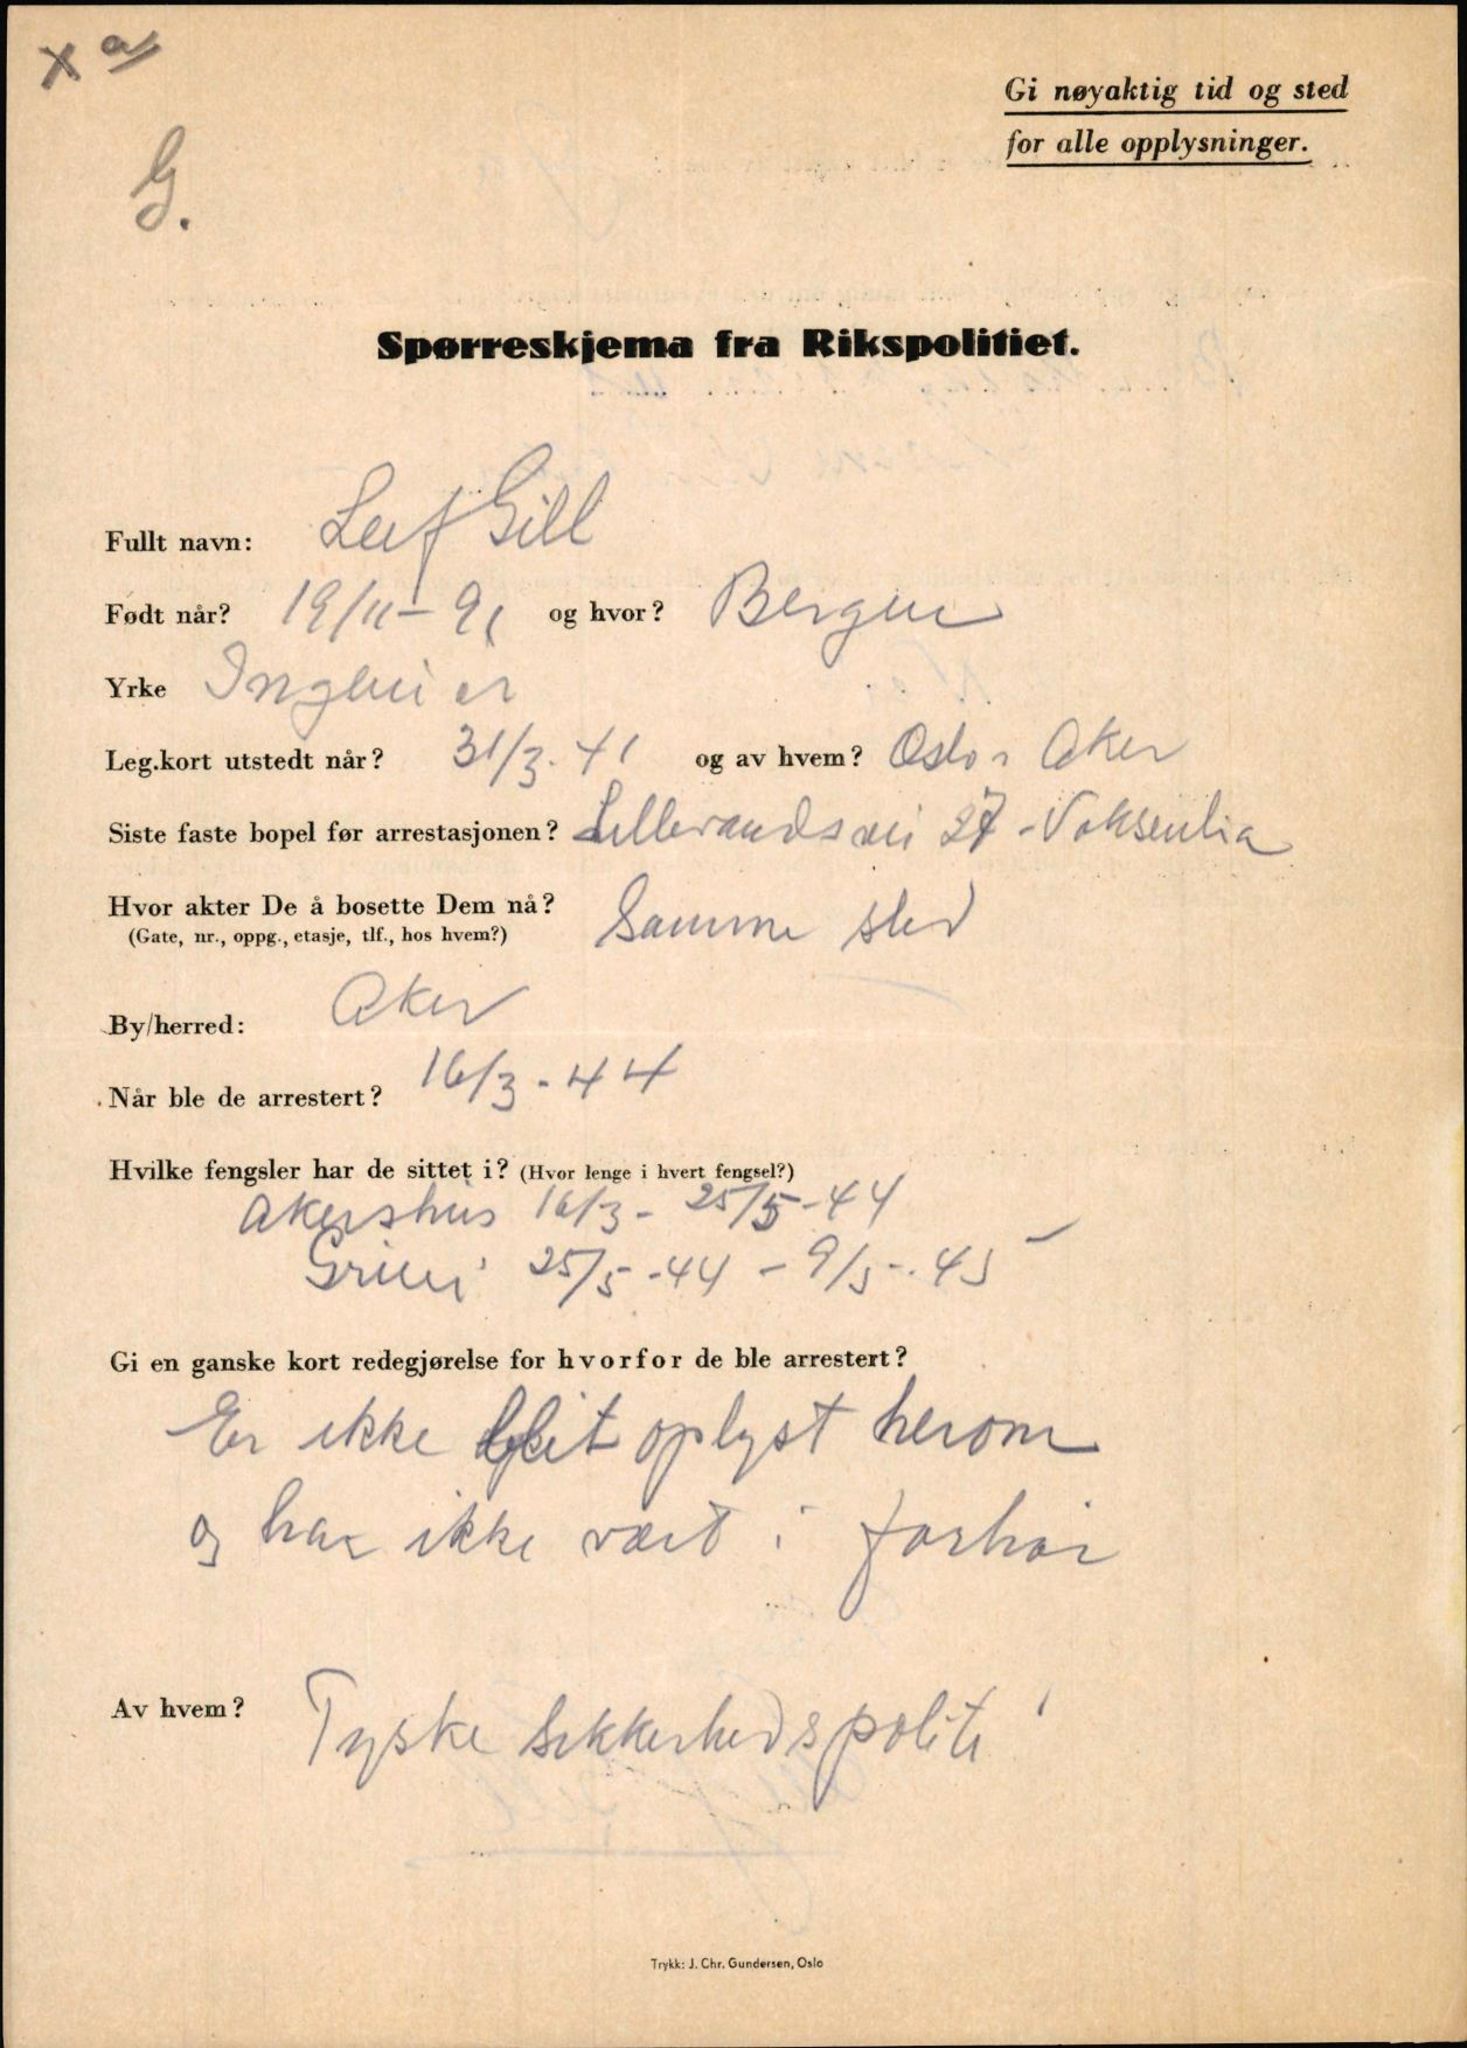 x a/
Gi nøyaktig tid og sted
for alle opplysninger.
G.
Spørreskjema fra Rikspolitiet.
Fullt navn: Leif Gill
Født når? 19/11 - 91 og hvor? Bergen
Yrke Ingeniør
Leg.kort utstedt når? 31/3. 41 og av hvem? Oslo, Aker
Siste faste bopel før arrestasjonen? Lillevandsvei 27 - Voksenlia
Hvor akter De å bosette Dem nå? Samme sted
(Gate, nr., oppg., etasje, tlf., hos hvem?)
By/herred: Aker
Når ble de arrestert? 16/3 - 44
Hvilke fengsler har de sittet i? (Hvor lenge i hvert fengsel?)
Akershus 16/3 - 25/5 - 44
Grini 25/5 - 44 - 9/5 - 45
Gi en ganske kort redegjørelse for hvorfor de ble arrestert?
Er ikke blit oplyst herom
og har ikke vært i forhør
Av hvem? Tyske Sikkerhedspoliti
Trykk: J. Chr. Gundersen, Oslo